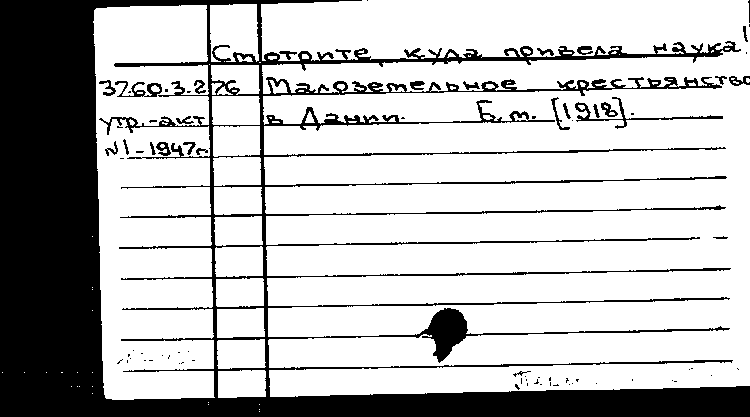 Смотрите, куда привела наука!
37.60.3.276 Малоземельное крестьянство
утр.-акт в Дании. Б.м. [1918].
№1-1947г.